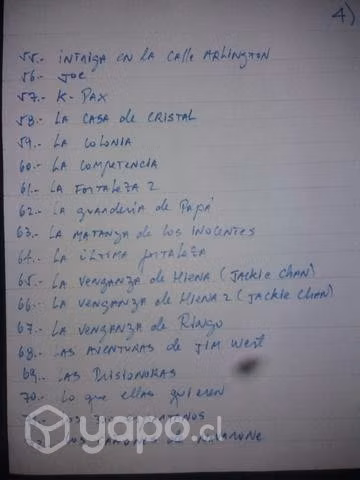 4)
55.- INTRIGA EN LA CALLE ARLINGTON
56.- JOE
57.- K-PAX
58.- LA CASA DE CRISTAL
59.- LA COLONIA
60.- LA COMPETENCIA
61.- LA FORTALEZA 2
62.- LA guardería de Papá
63.- LA MATANZA DE LOS INOCENTES
64.- LA ÚLTIMA fortaleza
65.- LA VENGANZA DE HIENA (JACKIE CHAN)
66.- LA VENGANZA DE HIENA 2 (JACKIE CHAN)
67.- LA VENGANZA DE RINGO
68.- LAS AVENTURAS de JIM WEST
69.- LAS PRISIONERAS
70.- LO QUE ELLAS QUIEREN
LOS
LOS CAÑONES DE NAVARONE
yapo.cl